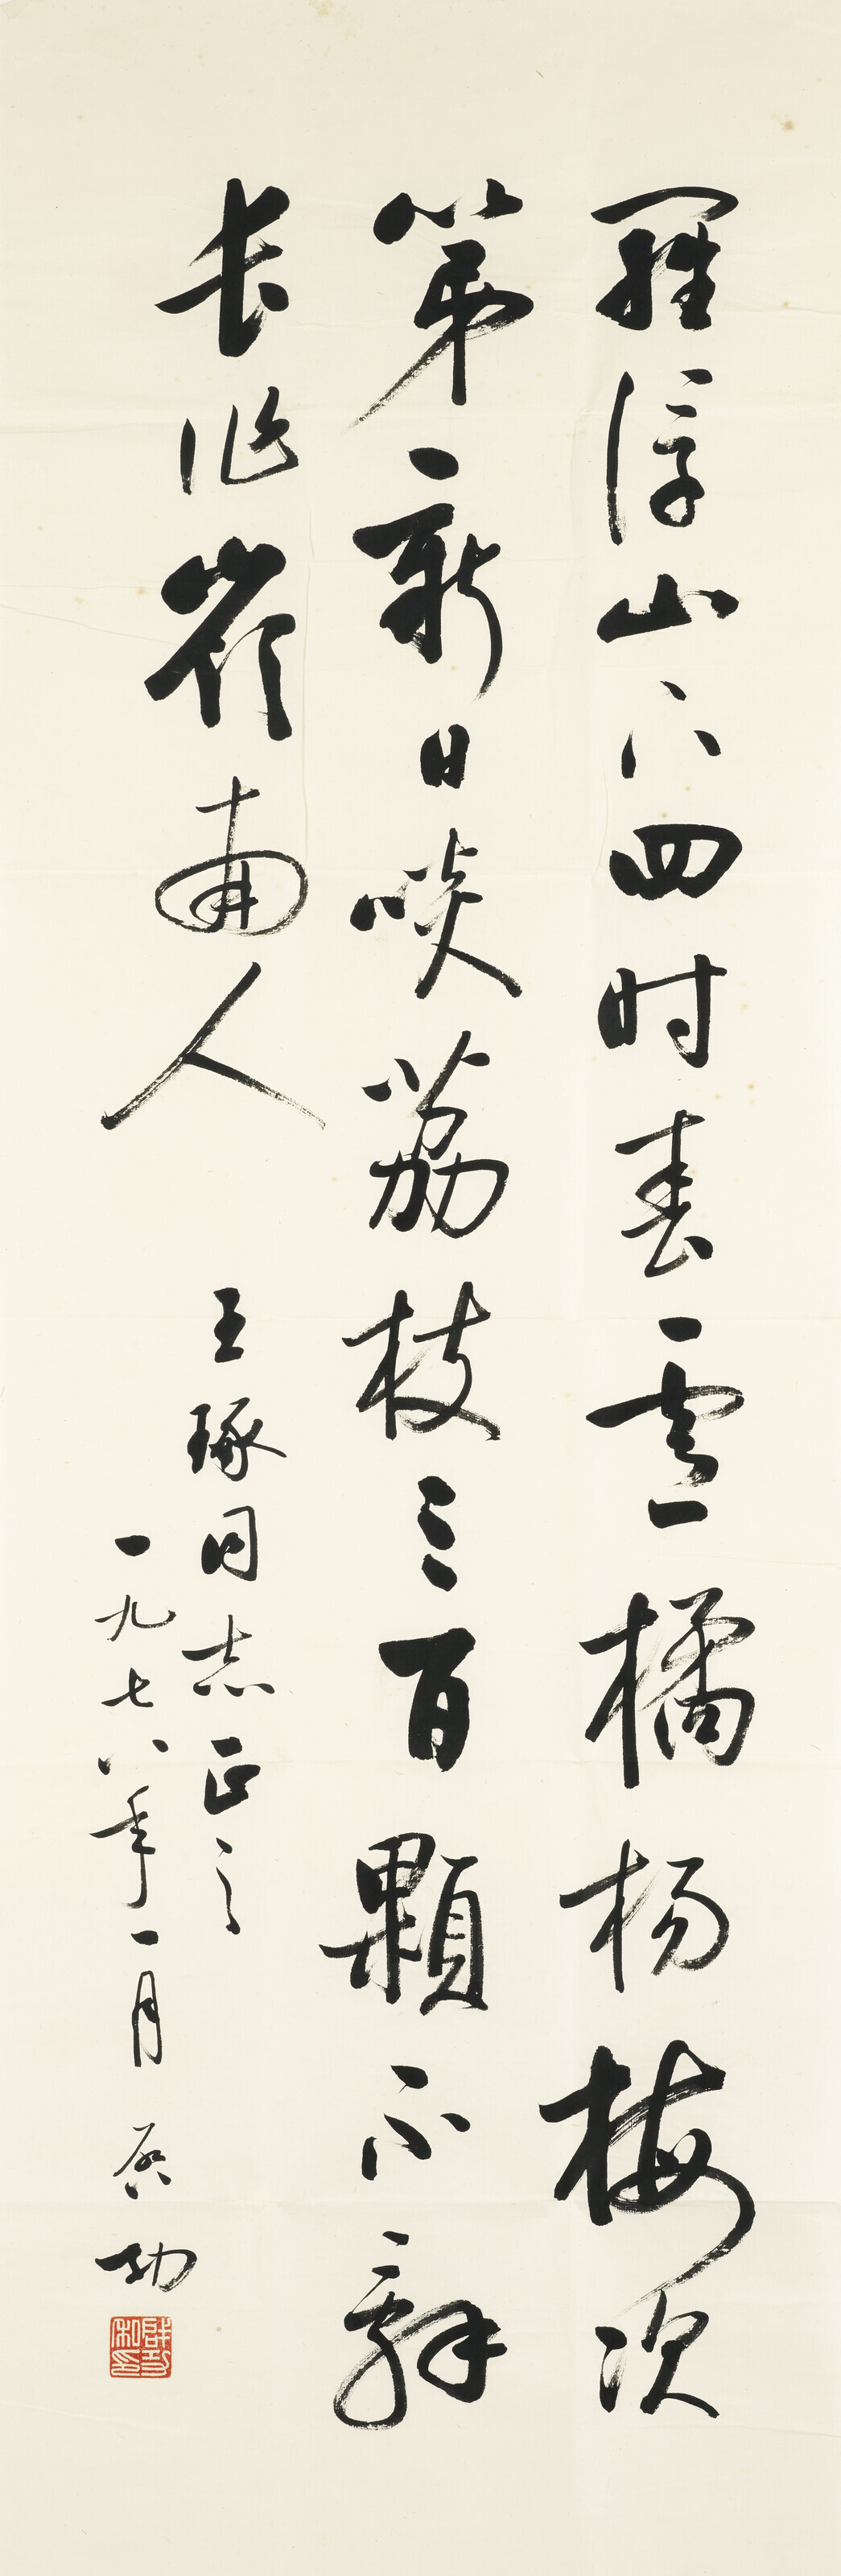 羅浮山下四时春盧橘杨梅次
第新日啖荔枝三百顆不辭
长作嶺南人
王琢同志正之
一九七八年一月 启功
啟功私印